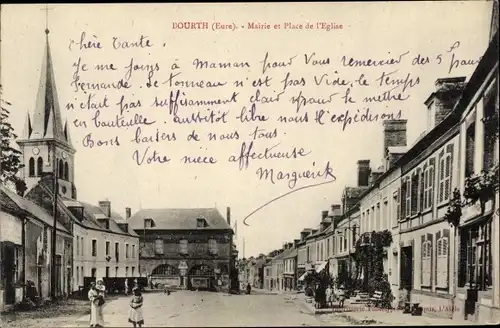 BOURTH (Eure). - Mairie et Place de l'Eglise
Chère Tante.
Je me joins à Maman pour Vous remercier des 5
demande. Le tonneau n'est pas Vide, le temps
n'était pas suffisamment clair pour le mettre
en bouteille. aussitôt libre nous l'expédirons
Bons baisers de nous tous.
Votre nièce affectueuse
Marguerite